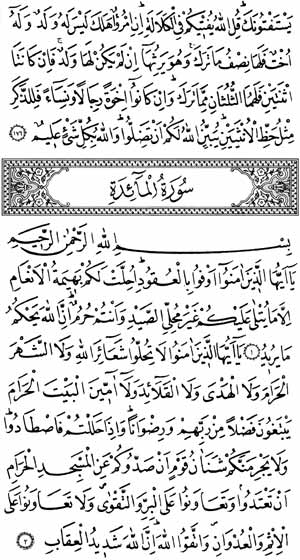 يَسْتَفْتُونَكَ قُلِ اللّٰهُ يُفْتِيكُمْ فِي الْكَلَالَةِ اِنِ امْرُؤٌا هَلَكَ لَيْسَ لَهُ وَلَدٌ وَلَهُ
اُخْتٌ فَلَهَا نِصْفُ مَا تَرَكَ وَهُوَ يَرِثُهَا اِنْ لَمْ يَكُنْ لَهَا وَلَدٌ فَاِنْ كَانَتَا
اثْنَتَيْنِ فَلَهُمَا الثُّلُثَانِ مِمَّا تَرَكَ وَاِنْ كَانُوا اِخْوَةً رِجَالًا وَنِسَاءً فَلِلذَّكَرِ
مِثْلُ حَظِّ الْاُنْثَيَيْنِ يُبَيِّنُ اللّٰهُ لَكُمْ اَنْ تَضِلُّوا وَاللّٰهُ بِكُلِّ شَيْءٍ عَلِيمٌ ١٧٦
سُورَةُ الْمَائِدَةِ
بِسْمِ اللّٰهِ الرَّحْمٰنِ الرَّحِيمِ
يَا اَيُّهَا الَّذِينَ اٰمَنُوا اَوْفُوا بِالْعُقُودِ اُحِلَّتْ لَكُمْ بَهِيمَةُ الْاَنْعَامِ
اِلَّا مَا يُتْلٰى عَلَيْكُمْ غَيْرَ مُحِلِّي الصَّيْدِ وَاَنْتُمْ حُرُمٌ اِنَّ اللّٰهَ يَحْكُمُ
مَا يُرِيدُ ١ يَا اَيُّهَا الَّذِينَ اٰمَنُوا لَا تُحِلُّوا شَعَائِرَ اللّٰهِ وَلَا الشَّهْرَ
الْحَرَامَ وَلَا الْهَدْيَ وَلَا الْقَلَائِدَ وَلَا اٰمِّينَ الْبَيْتَ الْحَرَامَ
يَبْتَغُونَ فَضْلًا مِنْ رَبِّهِمْ وَرِضْوَانًا وَاِذَا حَلَلْتُمْ فَاصْطَادُوا
وَلَا يَجْرِمَنَّكُمْ شَنَاٰنُ قَوْمٍ اَنْ صَدُّوكُمْ عَنِ الْمَسْجِدِ الْحَرَامِ
اَنْ تَعْتَدُوا وَتَعَاوَنُوا عَلَى الْبِرِّ وَالتَّقْوٰى وَلَا تَعَاوَنُوا عَلَى
الْاِثْمِ وَالْعُدْوَانِ وَاتَّقُوا اللّٰهَ اِنَّ اللّٰهَ شَدِيدُ الْعِقَابِ ٢